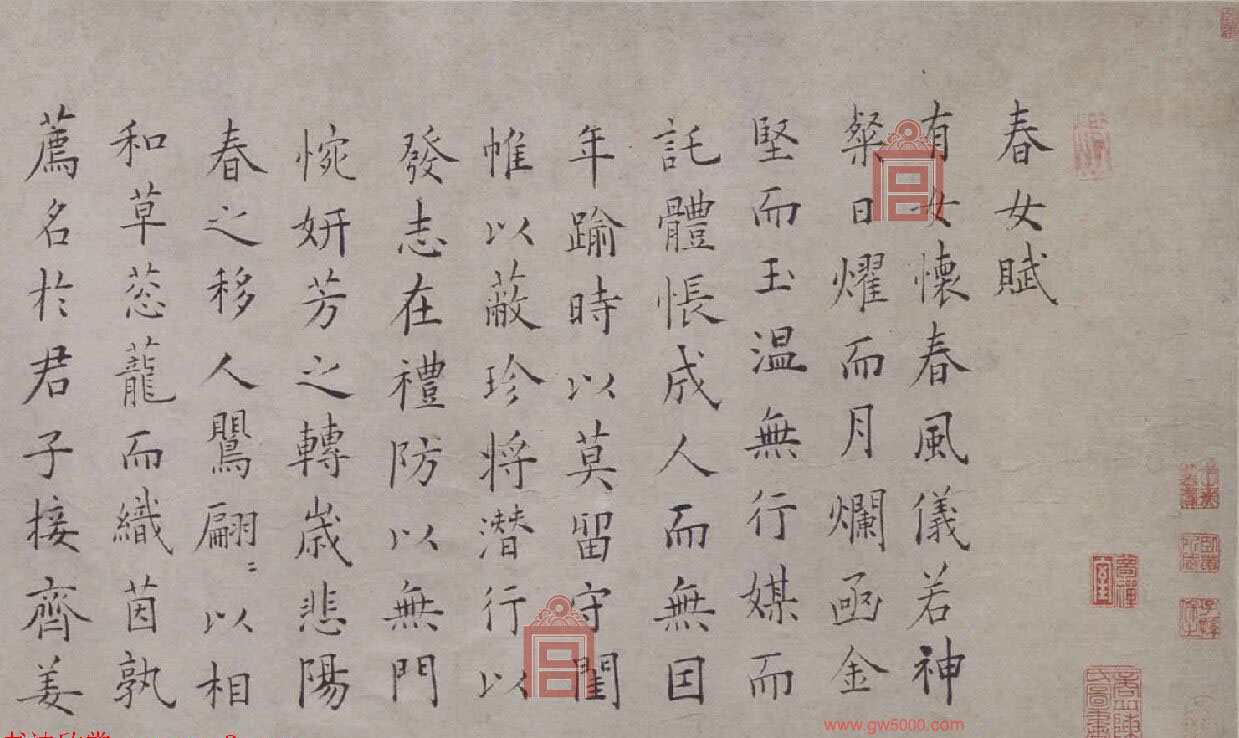 春女賦
有女懷春風儀若神
粲日燿而月爛函金
堅而玉温無行媒而
託體悵成人而無因
年踰時以莫留守閨
帷以蔽珍将潜行以
發志在禮防以無門
惋妍芳之轉歳悲陽
春之移人鸎翩〻以相
和草蒕蘢而織茵孰
薦名於君子接齊姜
www.gw5000.com